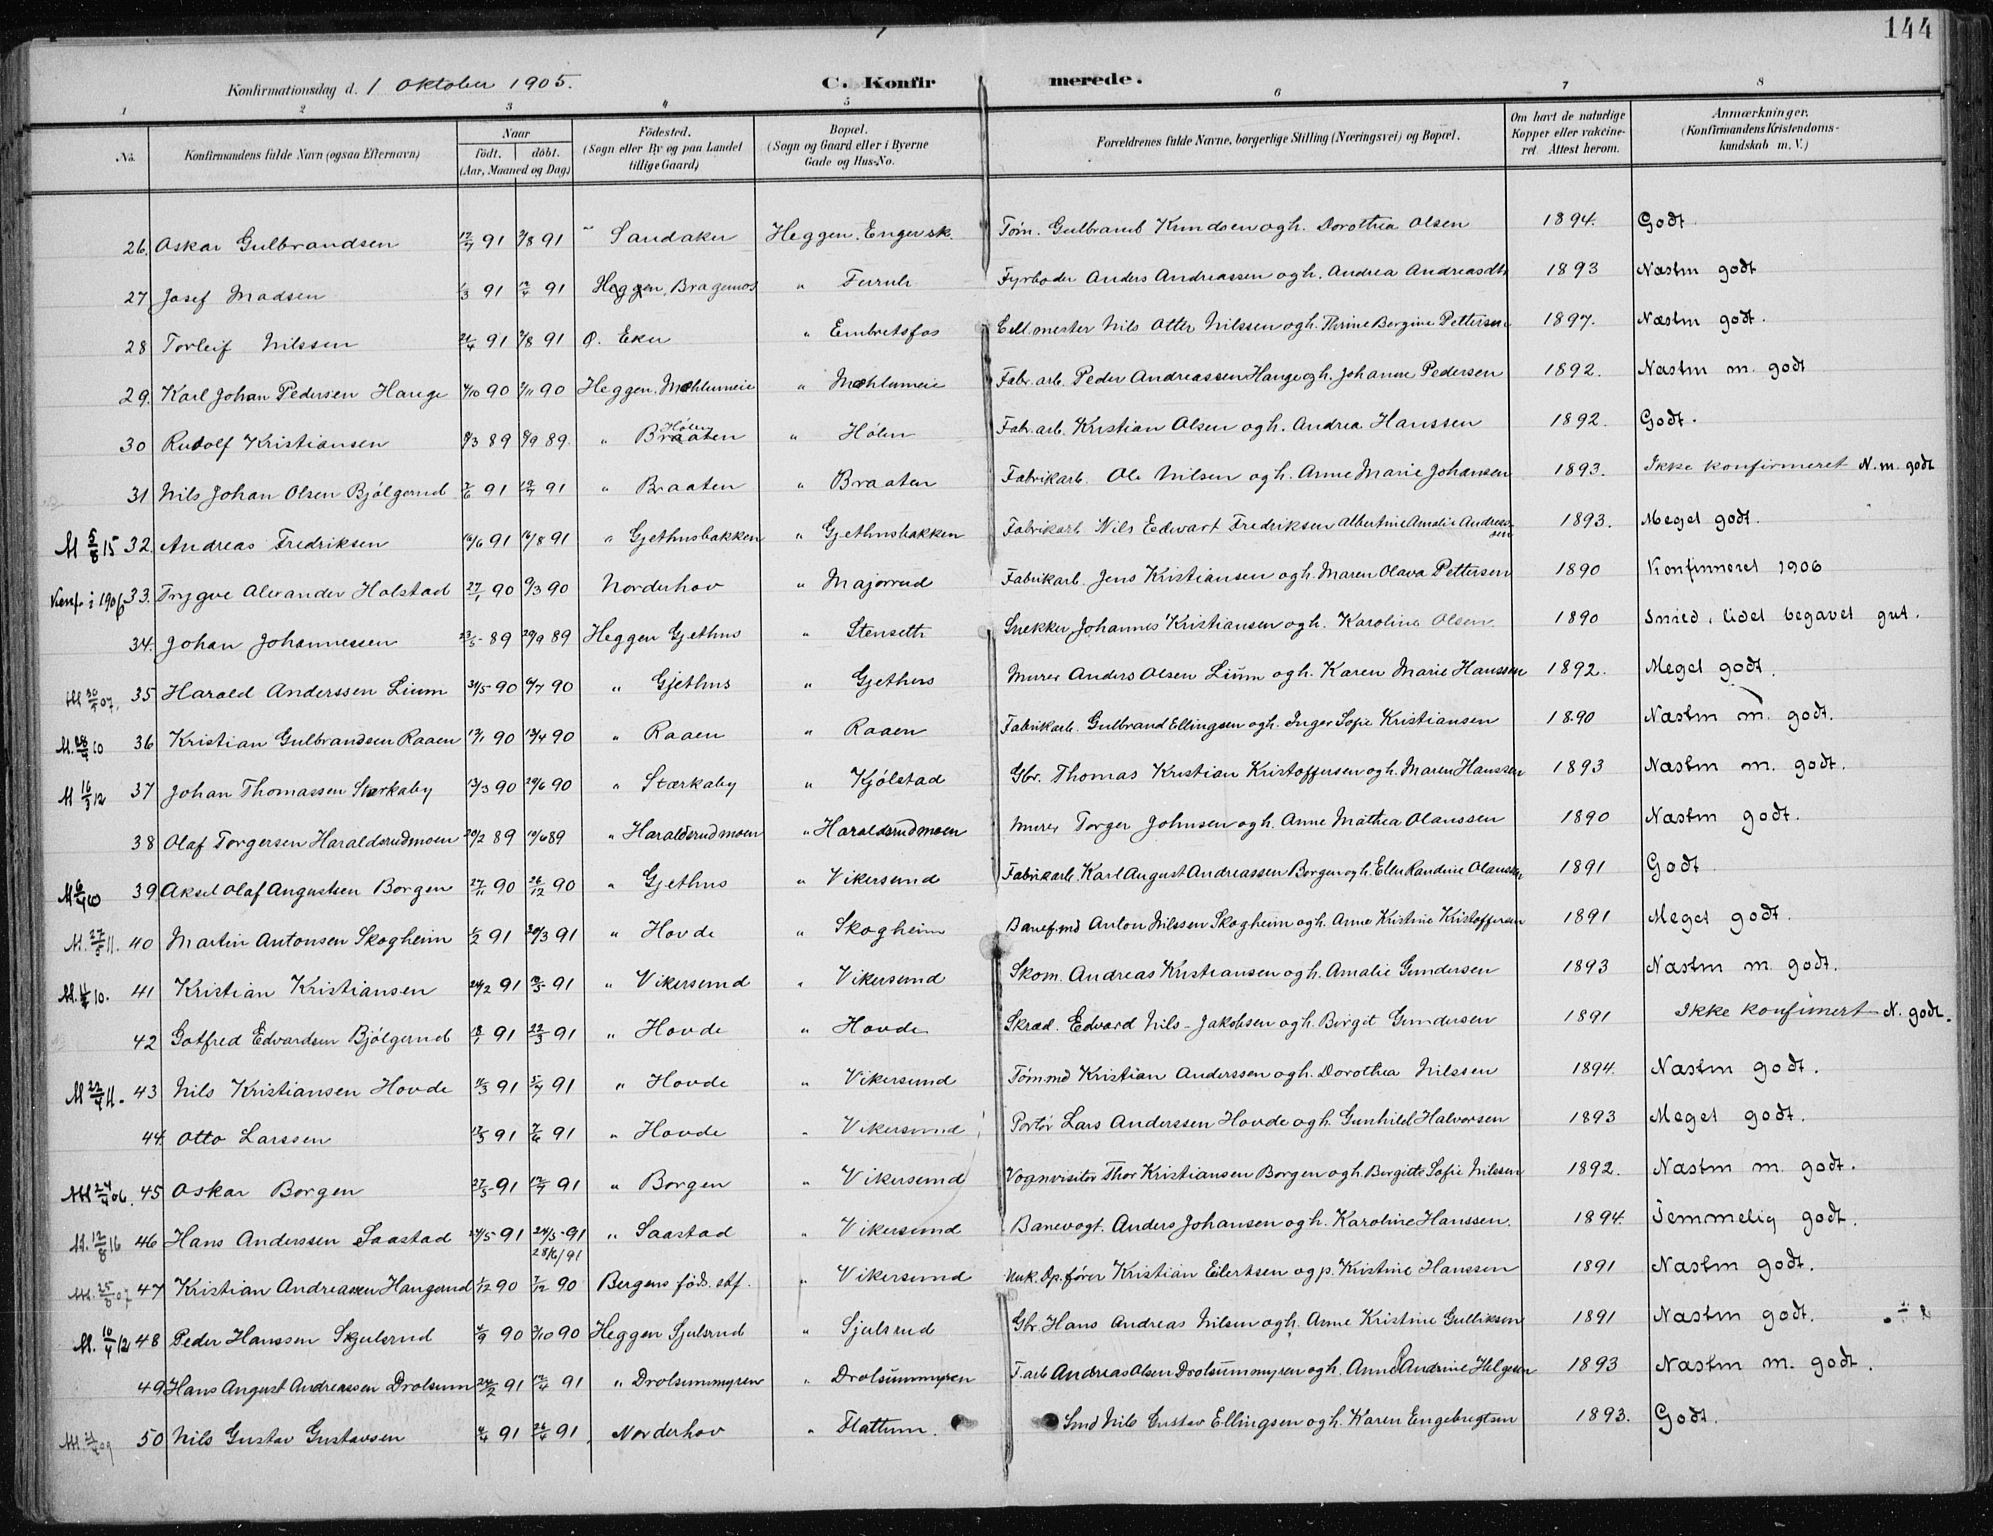 144
Konfirmationsdag d. 1 Oktober 1905. C. Konfir merede.
1 2 3 4 5 6 7 8
No. Konfirmandens fulde Navn (ogsaa Efternavn) Naar født. døbt. (Aar, Maaned og Dag) Fødested. (Sogn eller By og paa Landet tillige Gaard) Bopæl. (Sogn og Gaard eller i Byerne Gade og Hus-No. Forældrenes fulde Navne, borgerlige Stilling (Næringsvei) og Bopæl. Om havt de naturlige Kopper eller vakcineret. Attest herom. Anmærkninger. (Konfirmandens Kristendomskundskab m. V.)
26. Oskar Gulbrandsen 12/7 91 2/8 91 " Sandaker Heggen. Enger sk. Tøm. Gulbrand Knudsen og h. Dorothea Olsen 1894. Godt.
27 Josef Madsen 1/3 91 91 Heggen, Bragernos " Furuli Fyrbøder Anders Andreassen og h. Andrea Andreasdtr 1893 Næstm godt
28 Torleif Nilssen 24/4 91 2/8 91 Ø. Eker " Embretsfos Cell.mester Nils Otter Nilssen og h. Thrine Bergine Pettersen 1897. Næstm godt.
29. Karl Johan Pedersen Hauge 4/10 90 9/11 90 Heggen. Mæhlumeie " Mæhlumeie Fabr. arb. Peder Andreassen Hauge og h. Johanne Pedersen 1892. Næstm m. godt
30 Rudolf Kristiansen 8/3 89 8/9 89. " Braaten Hølen " Hølen Fabr. arb. Kristian Olsen og h. Andrea Hanssen 1892. Godt.
31 Nils Johan Olsen Bjølgerud 7/6 91 12/7 91 " Braaten " Braaten Fabrikarb. Ole Nilsen og h. Anne Marie Johansen 1893. Ikke konfirmeret N. m. godt
M 5/8 15 32. Andreas Fredriksen 16/6 91 16/8 91 " Gjethusbakken " Gjethusbakken Fabrikarb. Nils Edvart Frederiksen Albertine Amalie Andreassen 1893. Meget godt.
Konf. i 1906 33. Trygve Alexander Holstad 27/1 90 9/3 90 Norderhov " Majorrud Fabrikarb. Jens Kristiansen og h. Maren Olava Pettersen 1890 Konfirmeret 1906
34. Johan Johannessen 23/5 89 29/9 89 Heggen Gjethus " Stenseth Snekker Johannes Kristiansen og h. Karoline Olsen 1890 Snied, lidet begavet gut.
M 30/ 07. 35 Harald Anderssen Lium 31/5 90 6/7 90 " Gjethus " Gjethus Murer Anders Olsen Lium og h. Karen Marie Hanssen 1892. Meget godt.
M. 10 36 Kristian Gulbrandsen Raaen 17/1 90 13/4 90 " Raaen " Raaen Fabrikarb. Gulbrand Ellingsen og h. Inger Sofie Kristiansen 1890 Næstm m. godt.
M 16/3 12 37 Johan Thomassen Stærkaby 13/3 90 29/6 90 " Stærkaby " Kjølstad Gbr. Thomas Kristian Kristoffersen og h. Maren Hanssen 1893 Næstm m. godt.
38 Olaf Torgersen Haraldsrudmoen 20/2 89 10/6 89 " Haraldsrudmoen " Haraldsrudmoen Murer Torger Johnsen og h. Anne Mathea Olaussen 1890 Næstm godt.
M 10 39 Aksel Olaf Augustsen Borgen 27/11 90 26/12 90 " Gjethus " Vikersund Fabrikarb. Karl August Andreassen Borgen og h. Ellen Randine Olaussen 1891 Godt
M. 27/8 11. 40 Martin Antonsen Skogheim 1/2 91 30/3 91 " Hovde " Skogheim Banef.md Anton Nilssen Skogheim og h. Anne Kristine Kristoffersen 1891 Meget godt.
M. 10. 41 Kristian Kristiansen 24/2 91 91 " Vikersund " Vikersund Skom. Andreas Kristiansen og h. Amalie Gundersen 1893 Næstm m. godt.
42 Gotfred Edvardsen Bjølgerud 18/1 91 22/3 91 " Hovde " Hovde Skræd. Edvard Nils-Jakobsen og h. Birgit Gundersen 1891 Ikke konfirmert N. godt.
M 23/4 11. 43 Nils Kristiansen Hovde 11/3 91 5/7 91 " Hovde " Vikersund Tømmd Kristian Anderssen og h. Dorothea Nilssen 1894. Næstm godt.
44. Otto Larssen 17/3 91 7/6 91 " Hovde " Vikersund Portør Lars Anderssen Hovde og h. Gunhild Halvorsen 1893 Meget godt.
M 24/4 06. 45 Oskar Borgen 27/5 91 12/7 91 " Borgen " Vikersund Vognvisitør Thor Kristiansen Borgen og h. Bergitte Sofie Nilssen 1892. Næstm m. godt.
M. 12/8 16 46 Hans Anderssen Saastad 24/5 91 24/5 91 28/6/91 " Saastad " Vikersund Banevogt. Anders Johansen og h. Karoline Hanssen. 1894. Temmelig godt.
M. 25/8 07 47 Kristian Andreassen Haugerud 1/12 90 7/12 90 Bergens føds. stf. " Vikersund Uuk. Dp.fører Kristian Eilertsen og p. Kristine Hanssen 1891 Næstm godt.
M. 10/4 12 48 Peder Hanssen Sjulsrud 4/9 90 5/10 90 Heggen Sjulsrud " Sjulsrud Gbr. Hans Andreas Nilsen og h. Anne Kristine Gulliksen 1891 Næstm godt.
49 Hans August Andreassen Drolsum 24/2 91 12/4 91 " Drolsummyren " Drolsummyren F. arb Andreas Olsen Drolsummyren og h. Anne Andrine Helgesen 1893 Næstm m. godt.
M 09 50 Nils Gustav Gustavsen 4/4 91 26/4 91 Norderhov " Flattum. Smd Nils Gustav Ellingsen og h. Karen Engebrigtsen 1893. Godt.